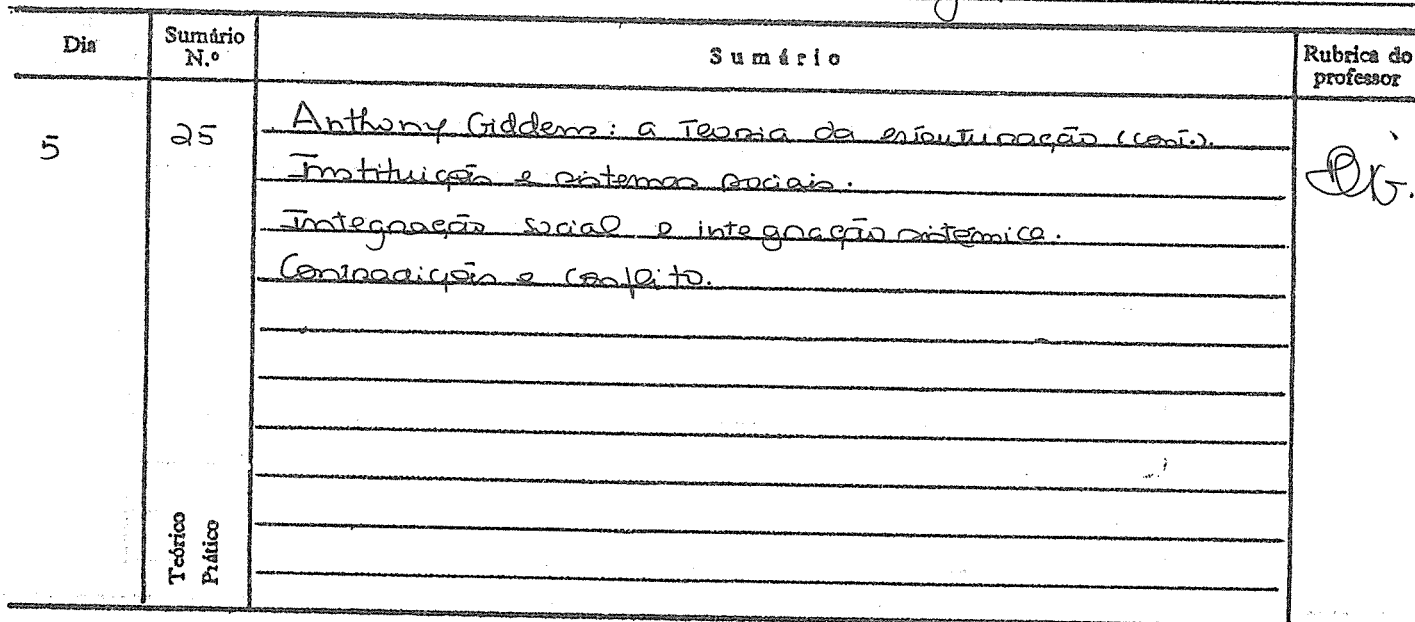 Dia
Sumário N.º
Sumário
Rubrica do professor
5
25
Anthony Giddens: a Teoria da estruturação (cont.).
Instituições e sistemas sociais.
Integração social e integração sistémica.
Contradição e conflito.
Teórico
Prático